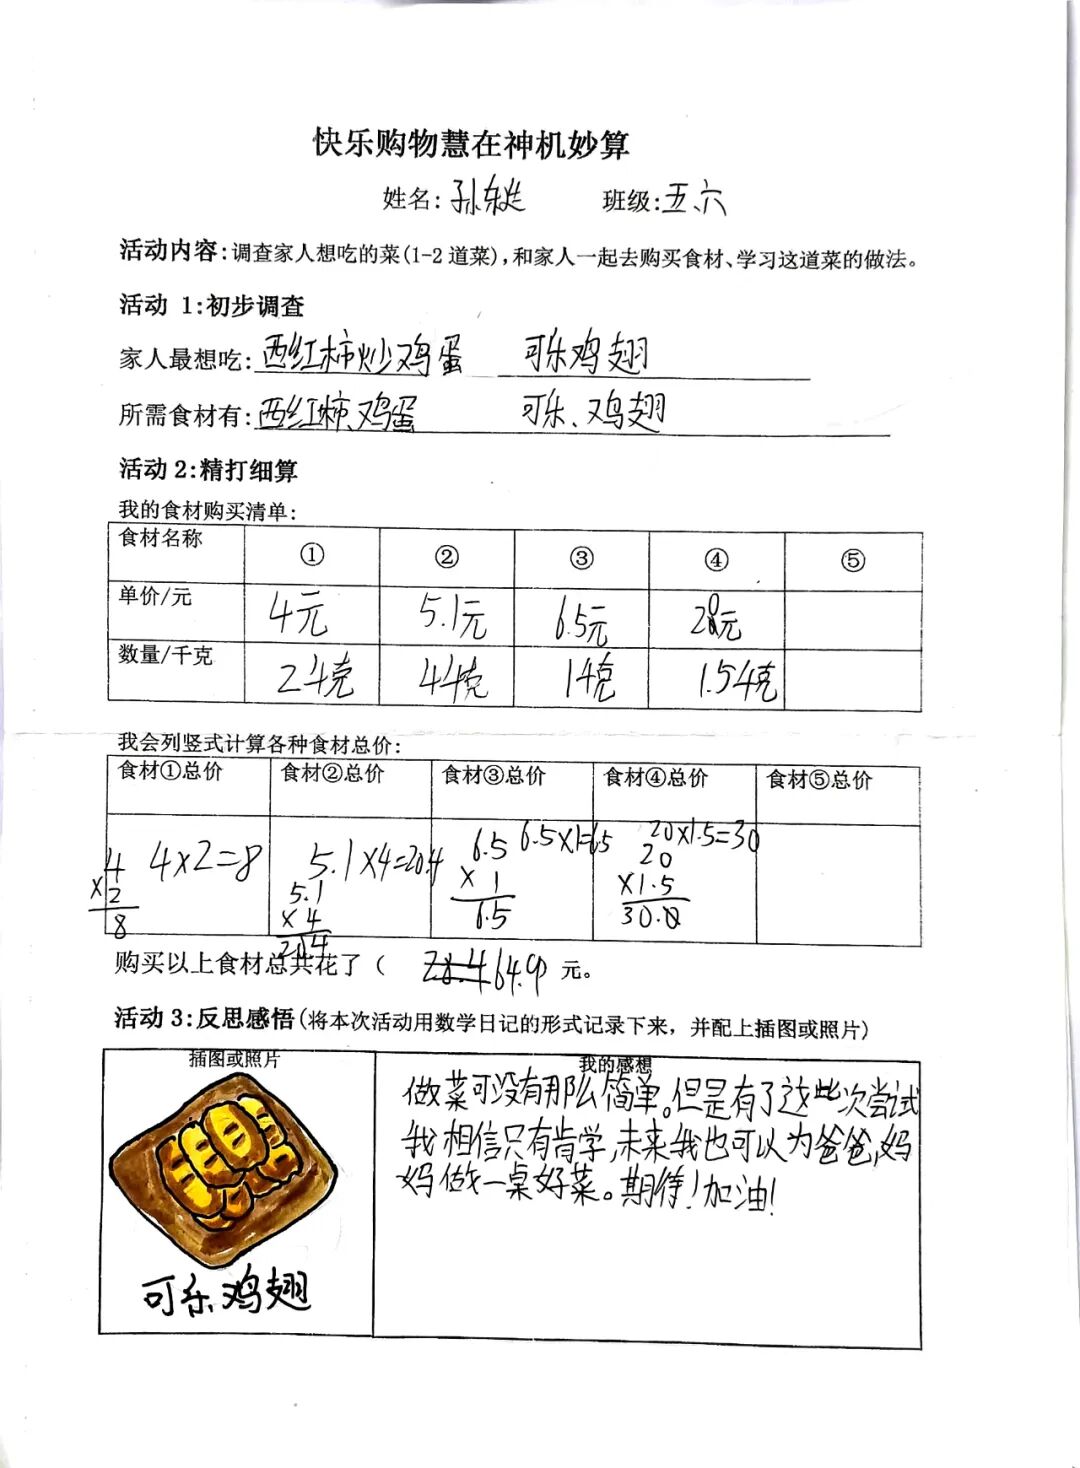 快乐购物慧在神机妙算
姓名: 孙 班级: 五、六
活动内容:调查家人想吃的菜(1-2道菜),和家人一起去购买食材、学习这道菜的做法。
活动 1:初步调查
家人最想吃: 西红柿炒鸡蛋 可乐鸡翅
所需食材有: 西红柿、鸡蛋 可乐、鸡翅
活动2:精打细算
我的食材购买清单:
食材名称 ① ② ③ ④ ⑤
单价/元 4元 5.1元 6.5元 元
数量/千克 2千克 4千克 1千克 1.5千克
我会列竖式计算各种食材总价:
食材①总价 食材②总价 食材③总价 食材④总价 食材⑤总价
4×2=8 5.1×4=20.4 6.5×1=6.5 20×1.5=30
4 5.1 6.5 20
×2 ×4 ×1 ×1.5
8 20.4 6.5 30.0
购买以上食材总共花了( 64.9) 元。
活动3:反思感悟(将本次活动用数学日记的形式记录下来，并配上插图或照片)
插图或照片
可乐鸡翅
我的感想
做菜可没有那么简单。但是有了这些次尝试
我相信只有肯学,未来我也可以为爸爸,妈
妈做一桌好菜。期待!加油!